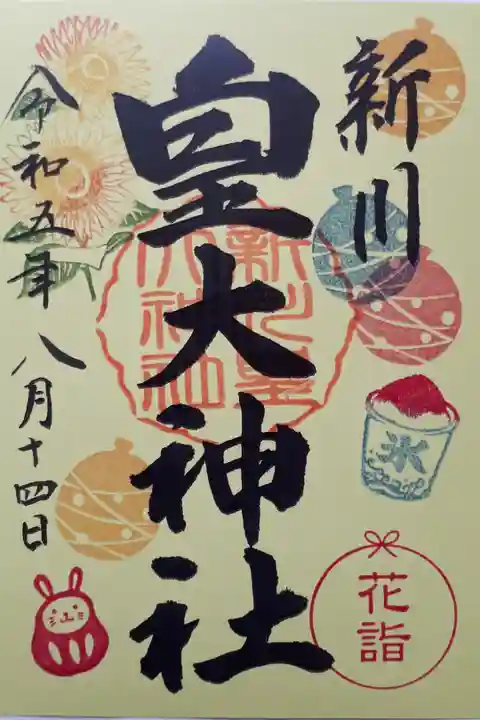 新川
皇大神社
新川皇
大神社
令和五年 八月十四日
氷
花詣